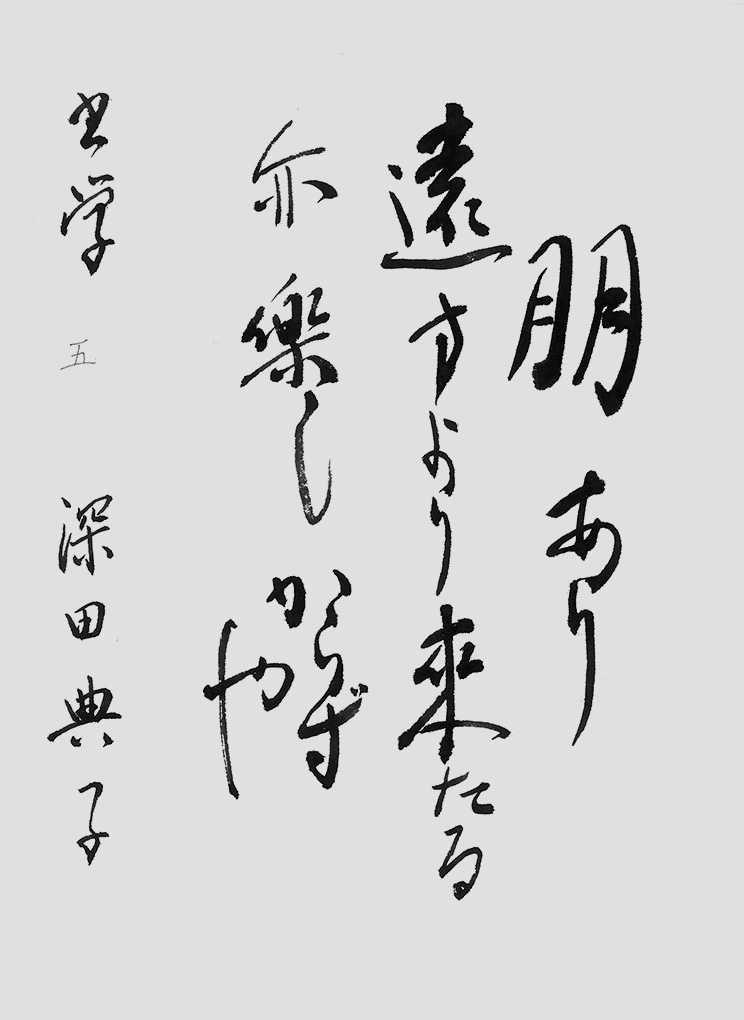 朋あり
遠方より來たる
亦樂しからずや
書学 五 深田典子